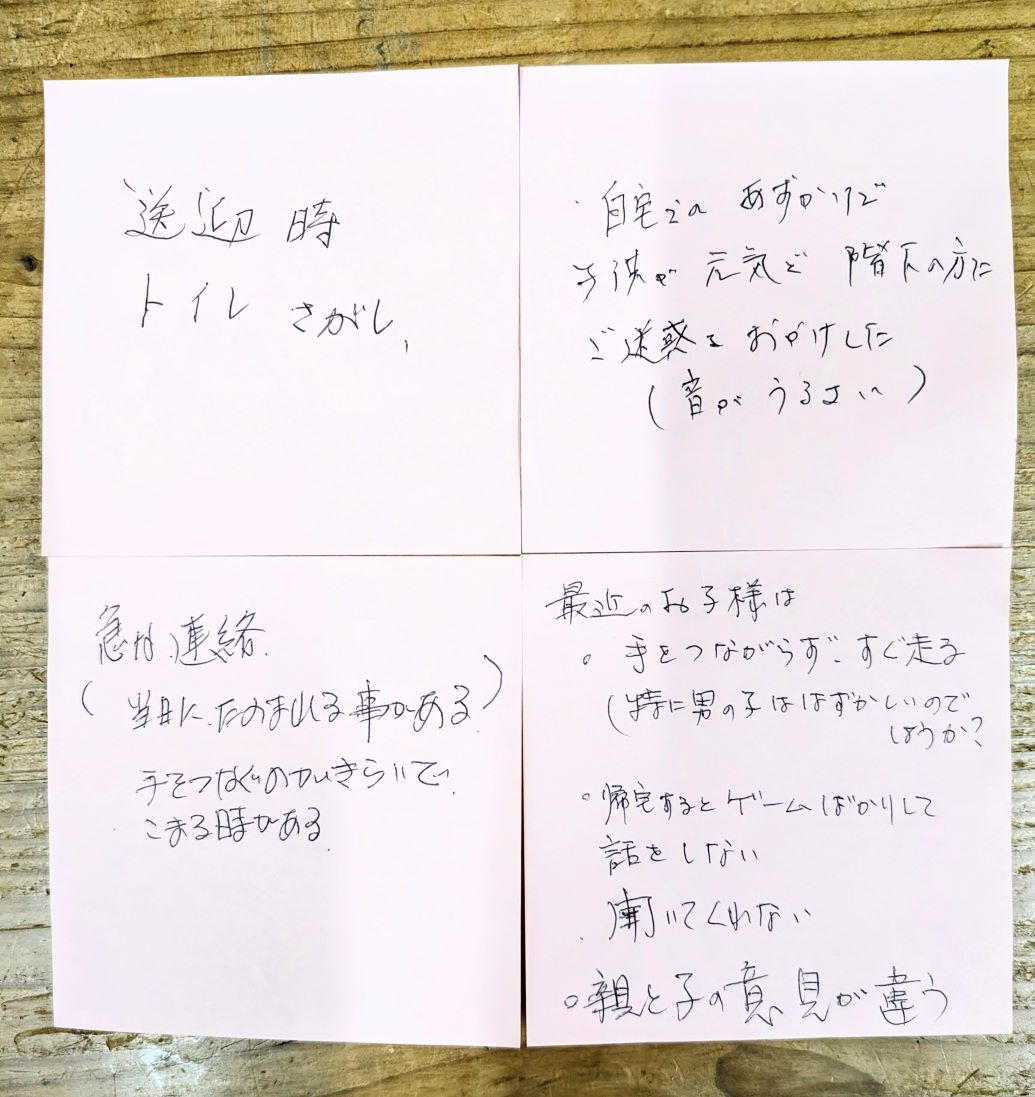 送迎時
トイレ さがし、
・自宅での あずかりで
子供が 元気で 階下の方に
ご迷惑を おかけした
(音が うるさい)
急な連絡
(当日に たのまれる事がある)
手をつなぐのがきらいで
こまる時がある
最近のお子様は
○ 手をつながらず、すぐ走る
(特に男の子ははずかしいので
しょうか?
○ 帰宅するとゲームばかりして
話をしない
聞いてくれない
○親と子の意見が違う